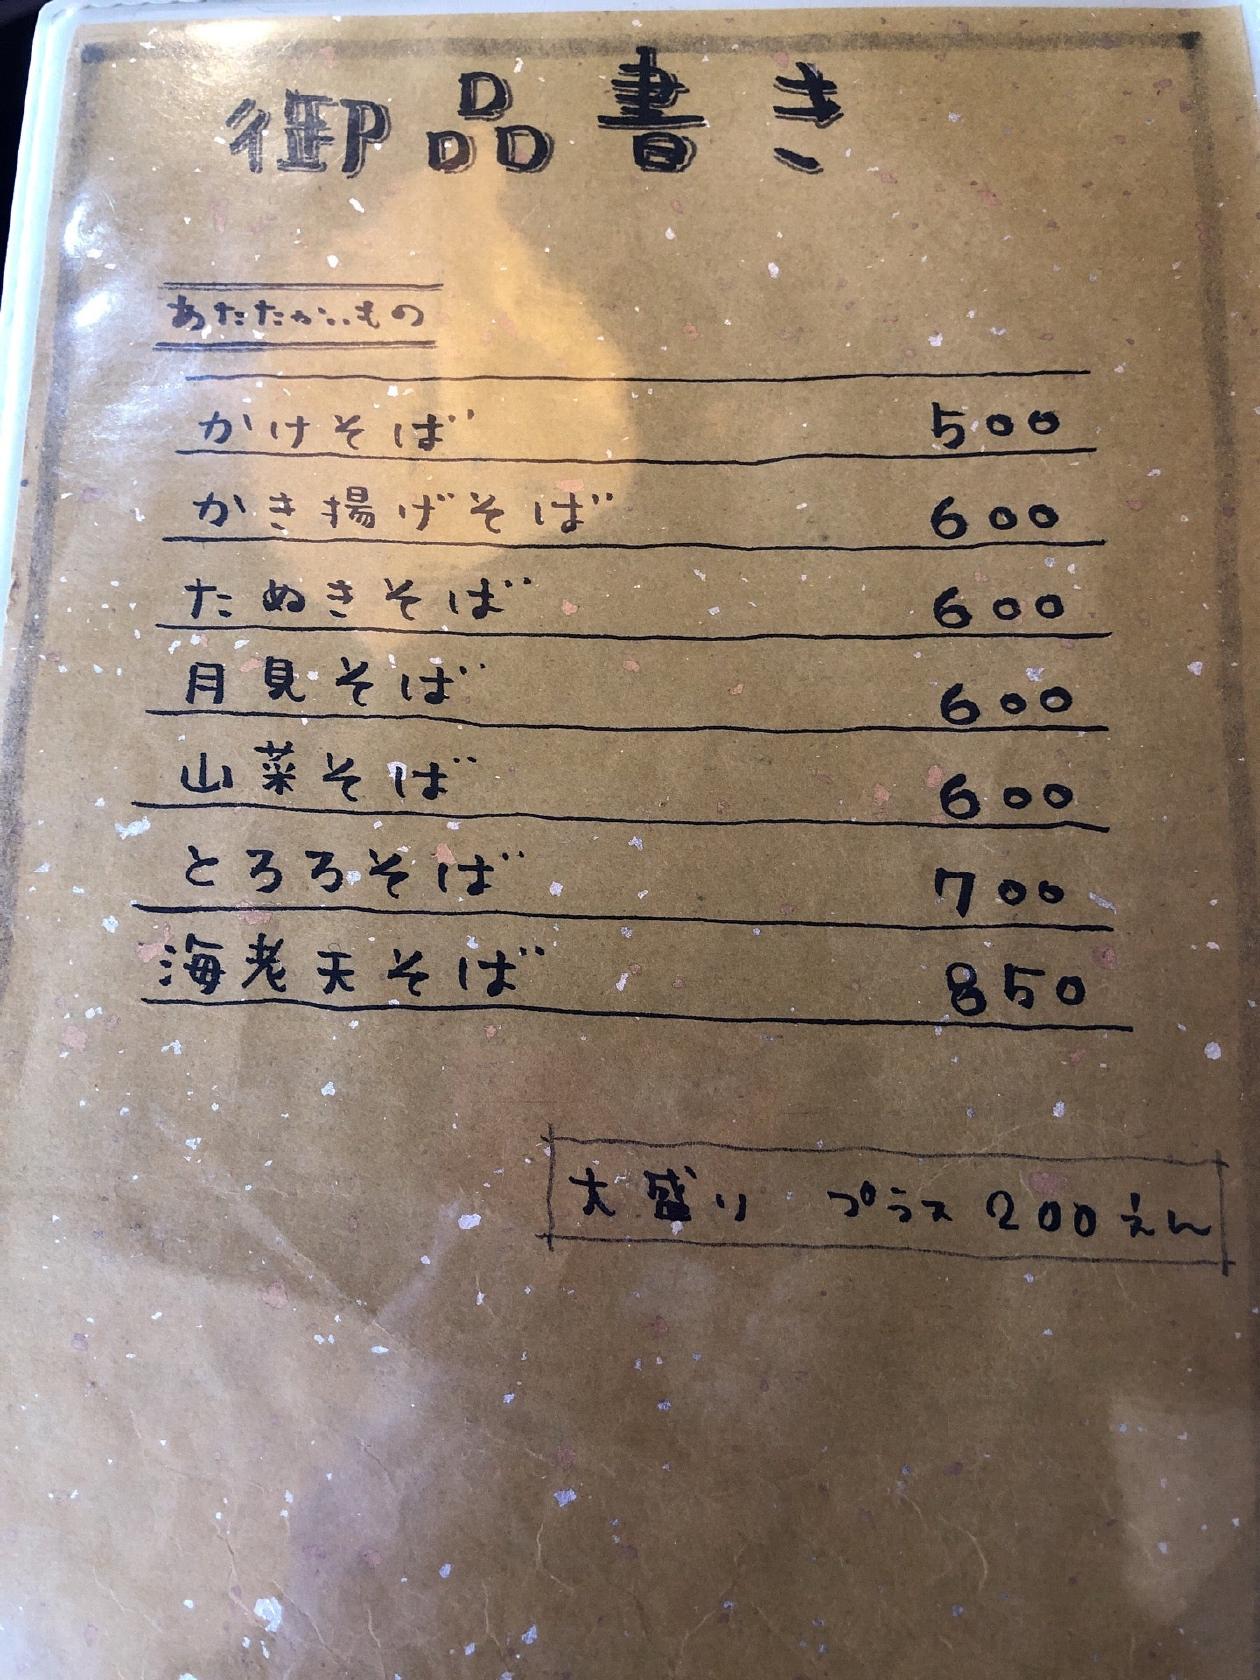 御品書き
あたたかいもの
かけそば 500
かき揚げそば 600
たぬきそば 600
月見そば 600
山菜そば 600
とろろそば 700
海老天そば 850
大盛り プラス200えん